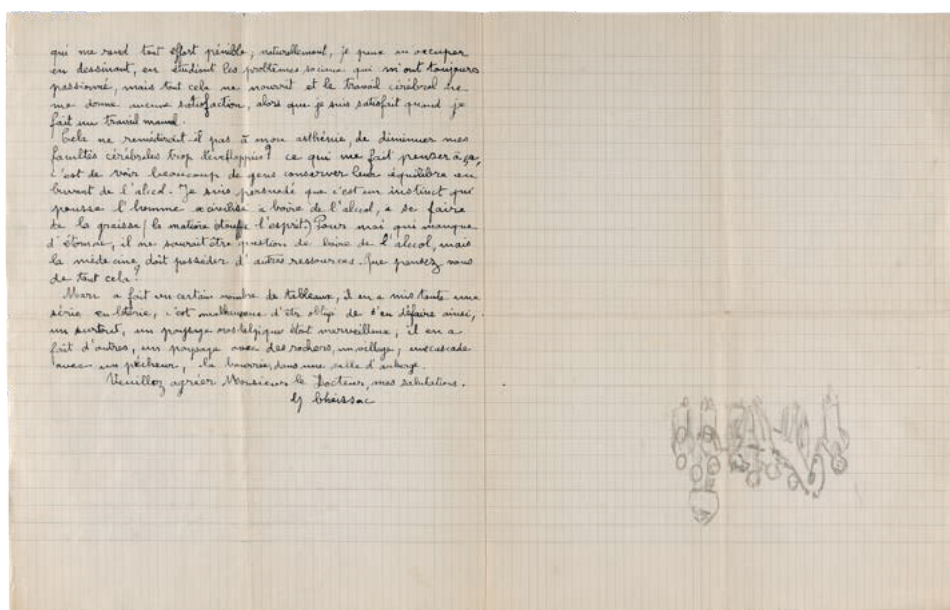 qui me rend tout effort pénible, naturellement, je peux m'occuper
en dessinant, en étudiant les problèmes sociaux qui m'ont toujours
passionné, mais tout cela ne nourrit et le travail cérébral ne
me donne aucune satisfaction, alors que je suis satisfait quand je
fait un travail manuel.
Cela ne remédirait-il pas à mon asthénie, de diminuer mes
facultés cérébrales trop développées? ce qui me fait penser à ça,
c'est de voir beaucoup de gens conserver leur équilibre en
buvant de l'alcool. Je suis persuadé que c'est un instinct qui
pousse l'homme à boire de l'alcool, à se faire
de la graisse (la matière étouffe l'esprit.) Pour moi qui manque
d'estomac, il ne saurait être question de boire de l'alcool, mais
la médecine doit posséder d'autres ressources. Que pensez vous
de tout cela?
Marc a fait un certain nombre de tableaux, il en a mis toute une
série en loterie, c'est malheureux d'être obligé de s'en défaire ainsi,
un surtout, un paysage nostalgique était merveilleux, il en a
fait d'autres, un paysage avec des rochers, un village, une cascade
avec un pêcheur, la bourrée dans une salle d'auberge.
Veuillez agréer Monsieur le Docteur, mes salutations.
G Chaissac